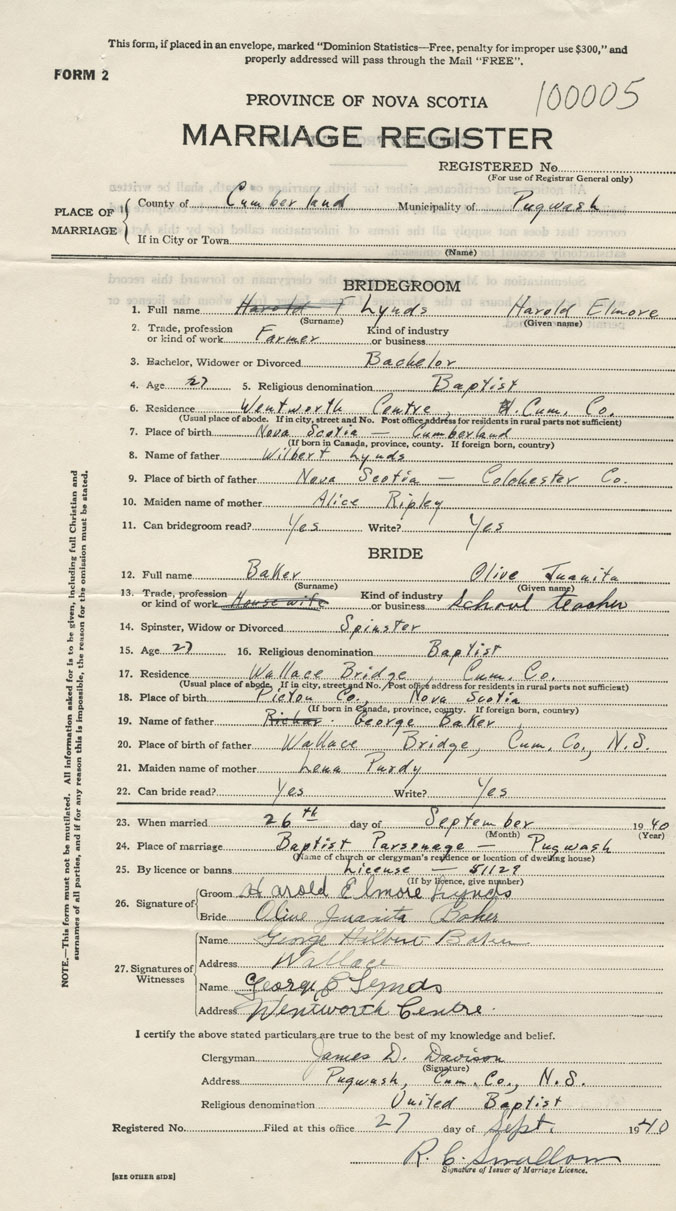 This form, if placed in an envelope, marked "Dominion Statistics—Free, penalty for improper use $300," and
properly addressed will pass through the Mail "FREE".
FORM 2
100005
PROVINCE OF NOVA SCOTIA
MARRIAGE REGISTER
REGISTERED No.
(For use of Registrar General only)
PLACE OF MARRIAGE
County of Cumberland Municipality of Pugwash
If in City or Town
(Name)
BRIDEGROOM
1. Full name Harold T Lynds Harold Elmore
(Surname) (Given name)
2. Trade, profession or kind of work Farmer Kind of industry or business
3. Bachelor, Widower or Divorced Bachelor
4. Age 27 5. Religious denomination Baptist
6. Residence Wentworth Centre, Cum. Co.
(Usual place of abode. If in city, street and No. Post office address for residents in rural parts not sufficient)
7. Place of birth Nova Scotia — Cumberland
(If born in Canada, province, county. If foreign born, country)
8. Name of father Wilbert Lynds
9. Place of birth of father Nova Scotia — Colchester Co.
10. Maiden name of mother Alice Ripley
11. Can bridegroom read? Yes Write? Yes
BRIDE
12. Full name Baker Olive Juanita
(Surname) (Given name)
13. Trade, profession or kind of work Housewife Kind of industry or business School teacher
14. Spinster, Widow or Divorced Spinster
15. Age 27 16. Religious denomination Baptist
17. Residence Wallace Bridge, Cum. Co.
(Usual place of abode. If in city, street and No. Post office address for residents in rural parts not sufficient)
18. Place of birth Pictou Co., Nova Scotia
(If born in Canada, province, county. If foreign born, country)
19. Name of father George Baker
20. Place of birth of father Wallace Bridge, Cum. Co., N.S.
21. Maiden name of mother Lena Purdy
22. Can bride read? Yes Write? Yes
23. When married 26th day of September 1940
(Month) (Year)
24. Place of marriage Baptist Parsonage — Pugwash
(Name of church or clergyman's residence or location of dwelling house)
25. By licence or banns License — 51129
(If by licence, give number)
26. Signature of
Groom Harold Elmore Lynds
Bride Olive Juanita Baker
27. Signatures of Witnesses
Name George Hilbert Baker
Address Wallace
Name George E Lynds
Address Wentworth Centre.
I certify the above stated particulars are true to the best of my knowledge and belief.
Clergyman James D. Davison
(Signature)
Address Pugwash, Cum. Co., N.S.
Religious denomination United Baptist
Registered No. Filed at this office 27 day of Sept. 1940
R. C. Smallom
Signature of Issuer of Marriage Licence.
[SEE OTHER SIDE]
NOTE.—This form must not be mutilated. All information asked for is to be given, including full Christian and
surnames of all parties, and if for any reason this is impossible, the reason for the omission must be stated.